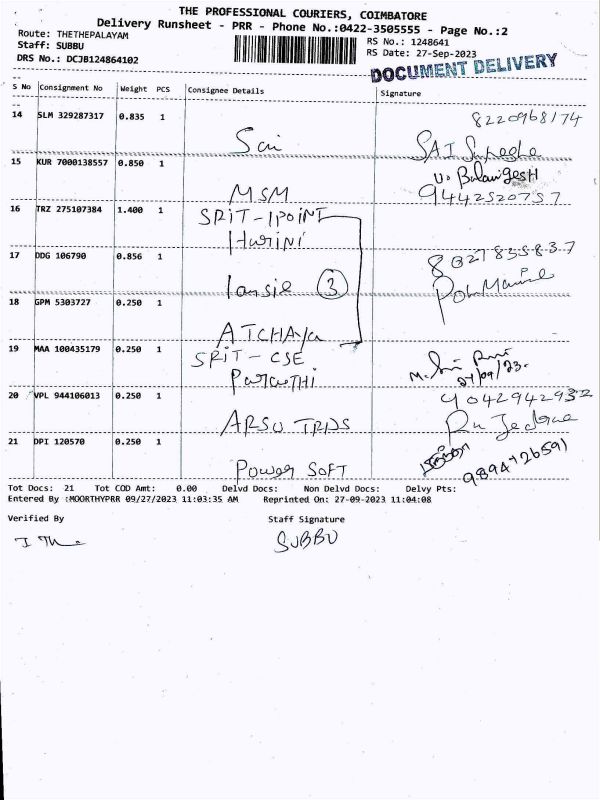 THE PROFESSIONAL COURIERS, COIMBATORE
Delivery Runsheet - PRR - Phone No.:0422-3505555 - Page No.:2
Route: THETHEPALAYAM
Staff: SUBBU
DRS No.: DCJB124864102
RS No.: 1248641
RS Date: 27-Sep-2023
DOCUMENT DELIVERY
S No Consignment No Weight PCS Consignee Details Signature
14 SLM 329287317 0.835 1
8220968174
Sai
SAI
15 KUR 7000138557 0.850 1
MSM
9442520757
16 TRZ 275107384 1.400 1
SRIT-IPOINT
Harini
17 DDG 106790 0.856 1
3
18 GPM 5303727 0.250 1
ATCHAYA
19 MAA 100435179 0.250 1
SRIT-CSE
ParvaTHi
20 VPL 944106013 0.250 1
9042942932
21 DPI 120570 0.250 1
Power SOFT
Tot Docs: 21 Tot COD Amt: 0.00 Delvd Docs: Non Delvd Docs: Delvy Pts:
Entered By :MOORTHYPRR 09/27/2023 11:03:35 AM Reprinted On: 27-09-2023 11:04:08
Verified By Staff Signature
SUBBU